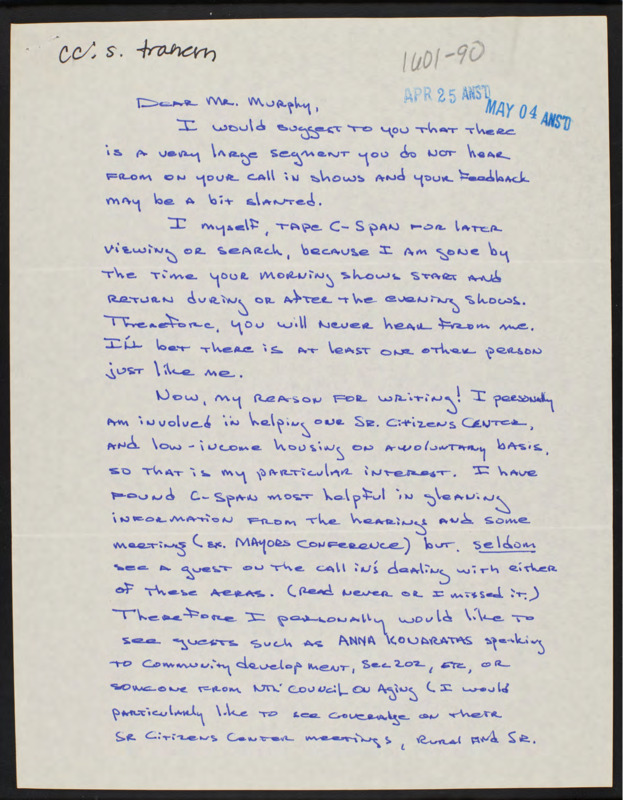 cc: s. trahern
1601-90
APR 25 ANS'D
MAY 04 ANS'D
Dear Mr. Murphy,
I would suggest to you that there
is a very large segment you do not hear
from on your call in shows and your feedback
may be a bit slanted.
I myself, tape C-Span for later
viewing or search, because I am gone by
the time your morning shows start and
return during or after the evening shows.
Therefore, you will never hear from me.
I'll bet there is at least one other person
just like me.
Now, my reason for writing! I personally
am involved in helping our Sr. Citizens Center,
and low-income housing on a voluntary basis,
so that is my particular interest. I have
found C-Span most helpful in gleaning
information from the hearings and some
meetings (ex. Mayors Conference) but seldom
see a guest on the call in's dealing with either
of these aeras. (Read never or I missed it.)
Therefore I personally would like to
see guests such as ANNA KONARATAS speaking
to community development, Sec 202, etc, or
someone from Ntl' Council on Aging (I would
particularly like to see coverage on their
Sr Citizens Center meetings, Rural and Sr.